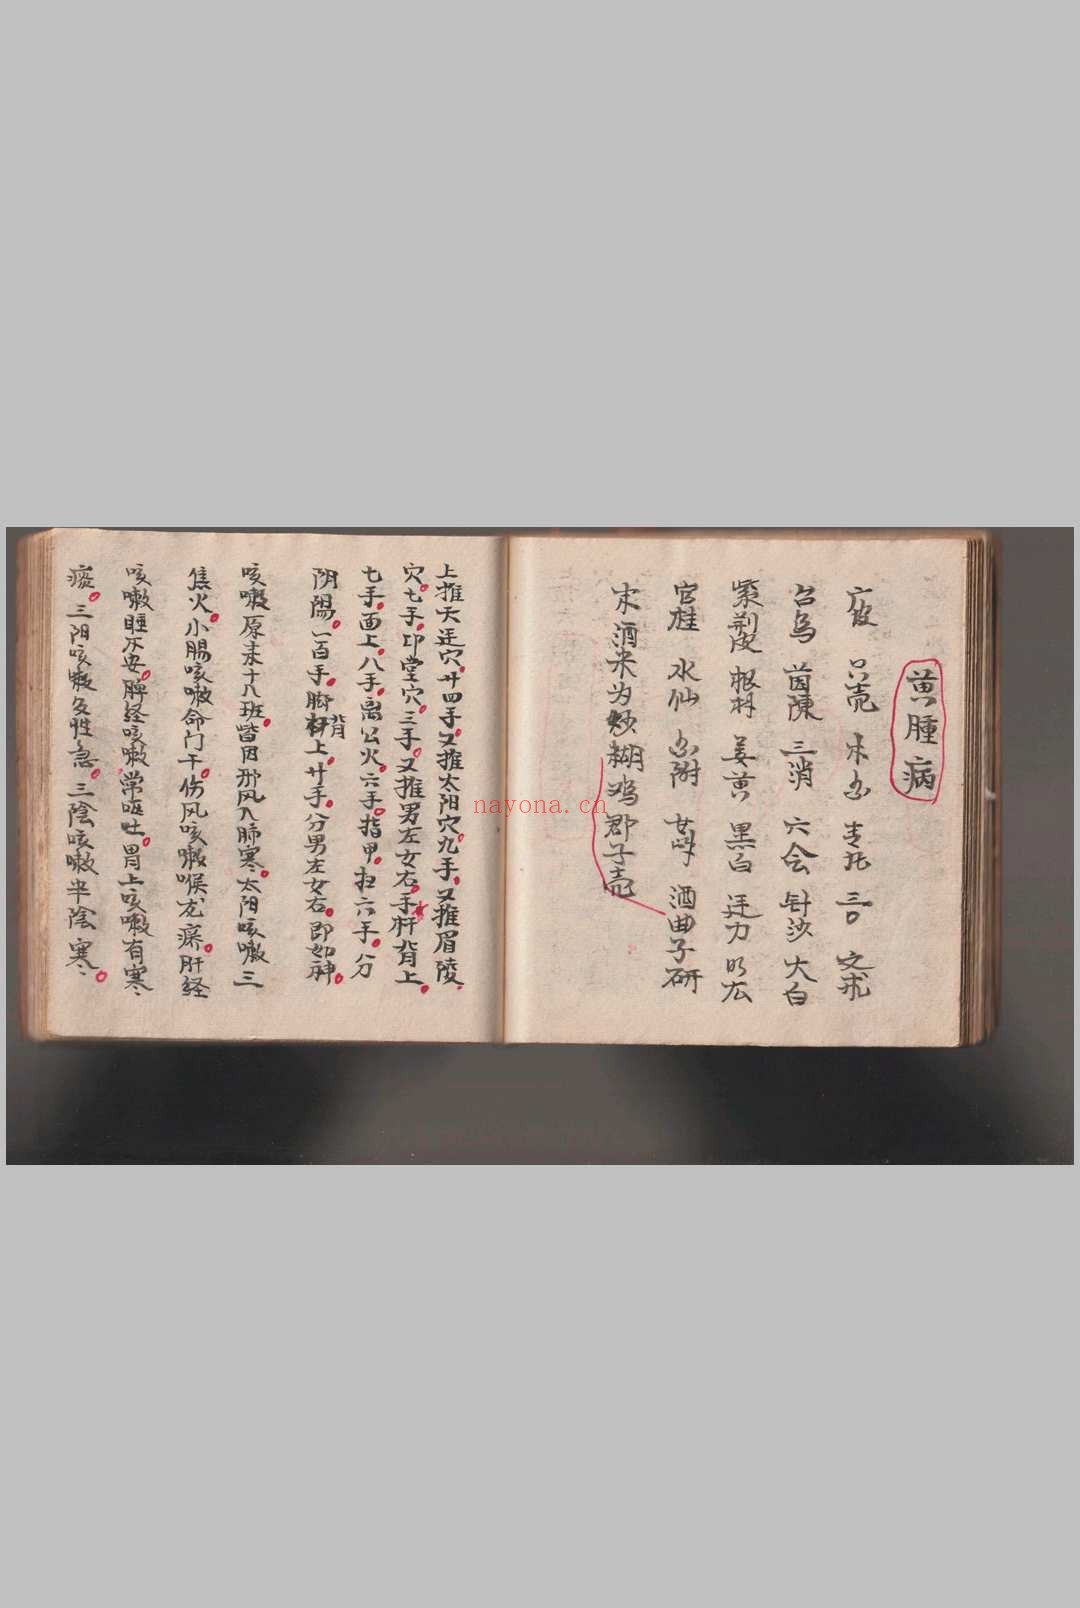 黄腫病
广皮 只壳 木香 青皮 三○ 文术
台乌 茵陳 三消 六会 针沙 大白
紫荆皮 根朴 姜黄 黑白 廷力
官桂 水仙 香附 酒曲子研
末酒米为 糊鸡郡子壳
上推天廷穴廿四手又推太阳穴九手又推眉陵
穴七手印堂穴三手又推男左女右手杆背上
七手面上八手离公火六手指甲扫六手分
阴陽一百手脚杆背上廿手分男左女右即如神
咳嗽原来十八班皆因邪风入肺寒太阳咳嗽三
焦火小腸咳嗽命门干伤风咳嗽喉尤痳肝経
咳嗽睡不安脾経咳嗽常呕吐胃上咳嗽有寒
痰三阳咳嗽多性急三陰咳嗽半陰寒
nayona.cn